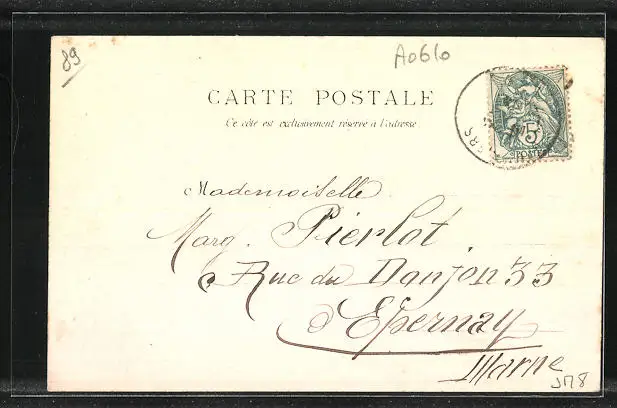 89
A0610
CARTE POSTALE
Ce côté est exclusivement réservé à l'adresse
5
POSTES
Mademoiselle
Marg. Pierlot
Rue du Donjon 33
Epernay
Marne
JM8